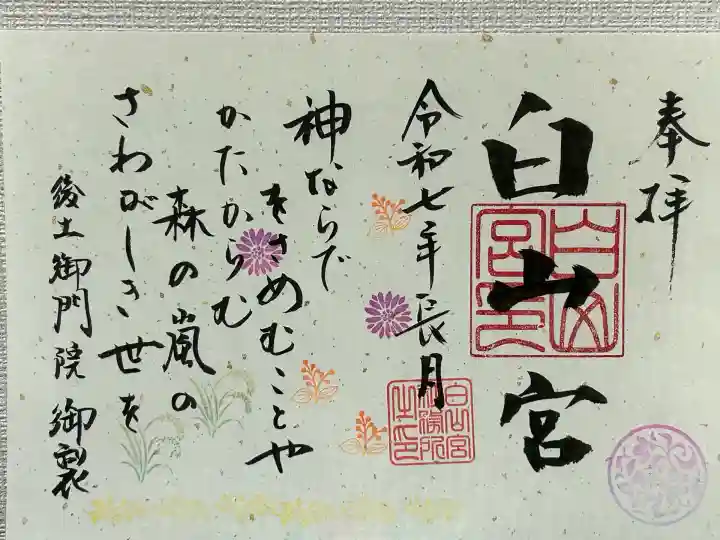 奉拝
白山宮
白山宮印
令和七年長月
白山宮社務所之印
神ならで
をさめむことや
かたからむ
森の嵐の
さわがしき世を
後土御門院御製